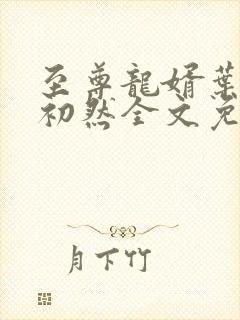 至尊龍婿葉
初然全文免
月下竹